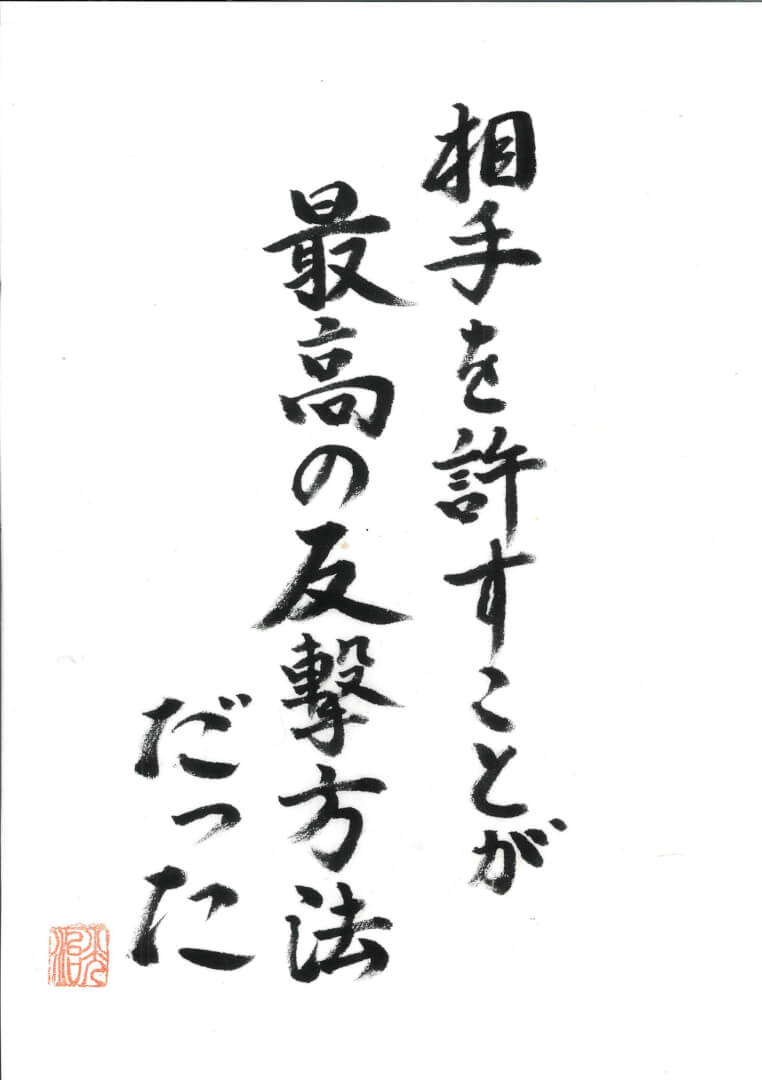 相手を許すことが
最高の反撃方法
だった